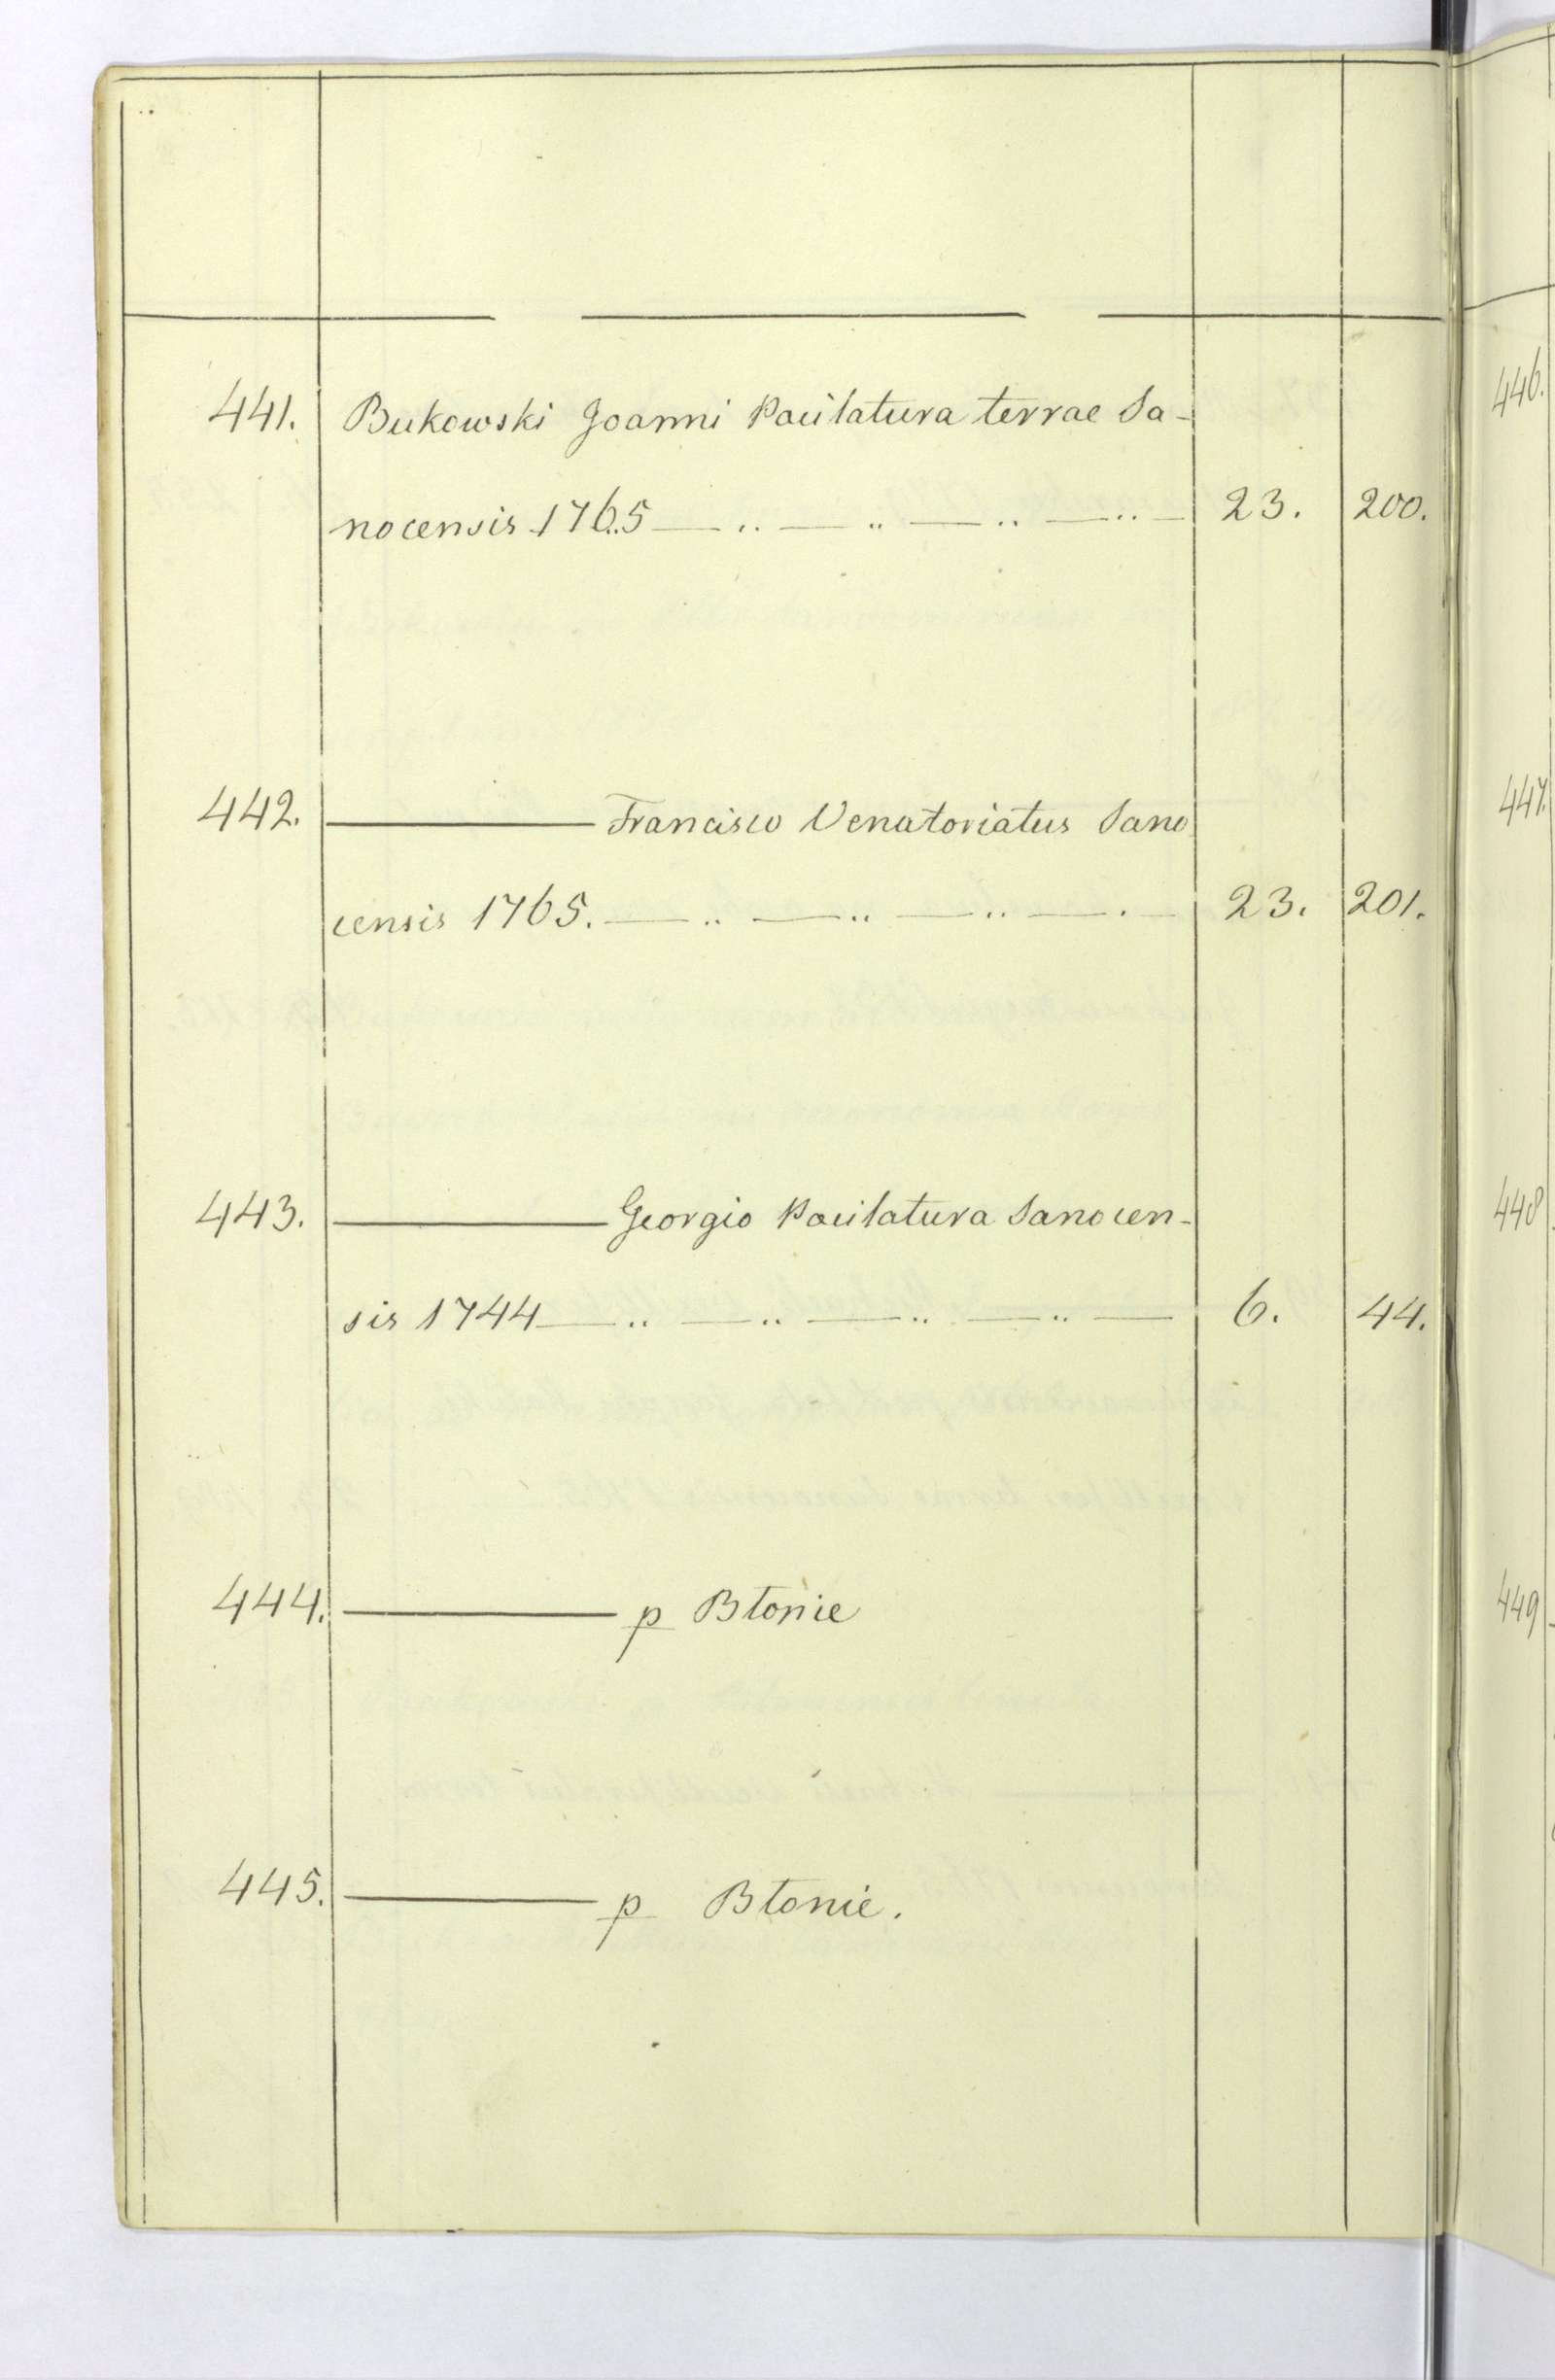 441. Bukowski Joanni Pocilatura terrae Sa-
nocensis 1765 — .. — .. — .. — .. — 23. 200.
442. ——— Francisco Venatoriatus Sano
censis 1765. — .. — .. — .. — . — 23. 201.
443. ——— Georgio Pocilatura Sanocen-
sis 1744 — .. — .. — .. — .. — 6. 44.
444. ——— p Błonie
445. ——— p Błonie.
446.
447.
448
449